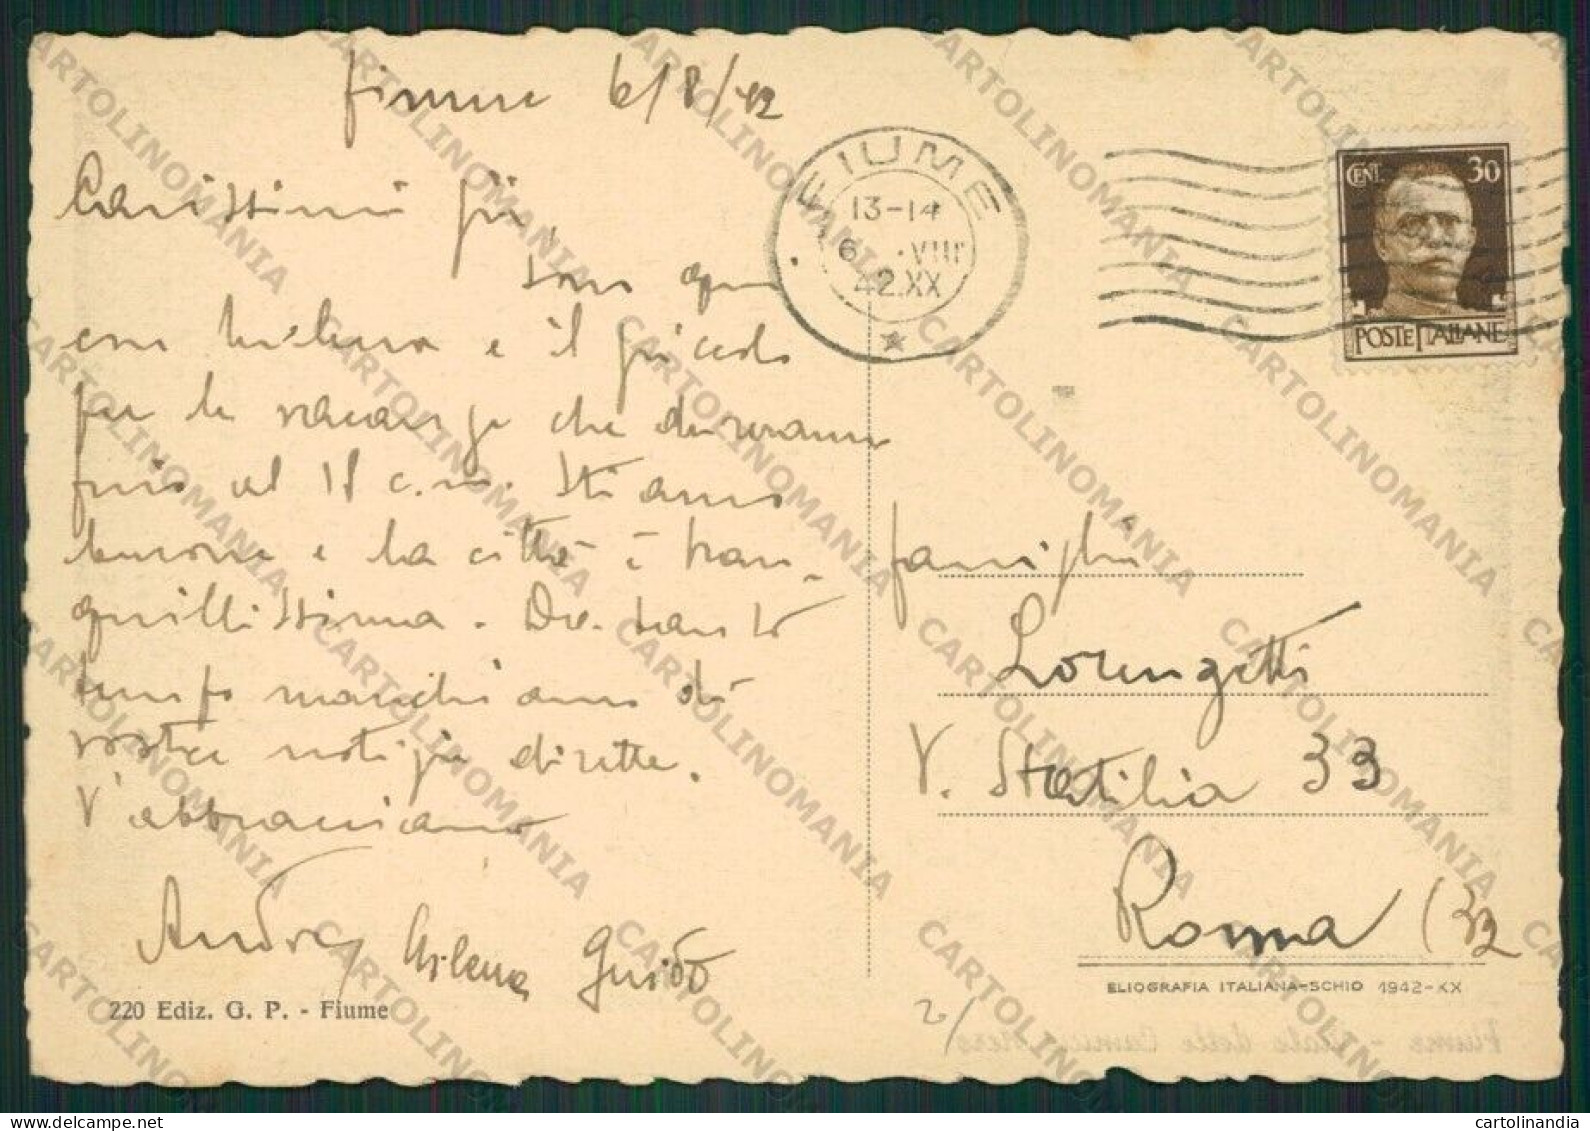 Fiume 6/8/42
Carissimi
sono qui
con Milena e il piccolo
per le vacanze che dureranno
fino al 18 c.m. Stiamo
benone e la città è tran-
quillissima. Da tanto
tempo manchiamo di
vostre notizie dirette.
V'abbracciamo
Andrea Milena Guido
220 Ediz. G. P. - Fiume
FIUME
13-14
6 .VIII
42.XX
CENT 30
POSTE ITALIANE
famiglia
Lorenzetti
V. Statilia 33
Roma (32
ELIOGRAFIA ITALIANA-SCHIO 1942-XX
2/
Fiume - Viale delle Camicie Nere
CARTOLINOMANIA
www.delcampe.net
cartolinandia